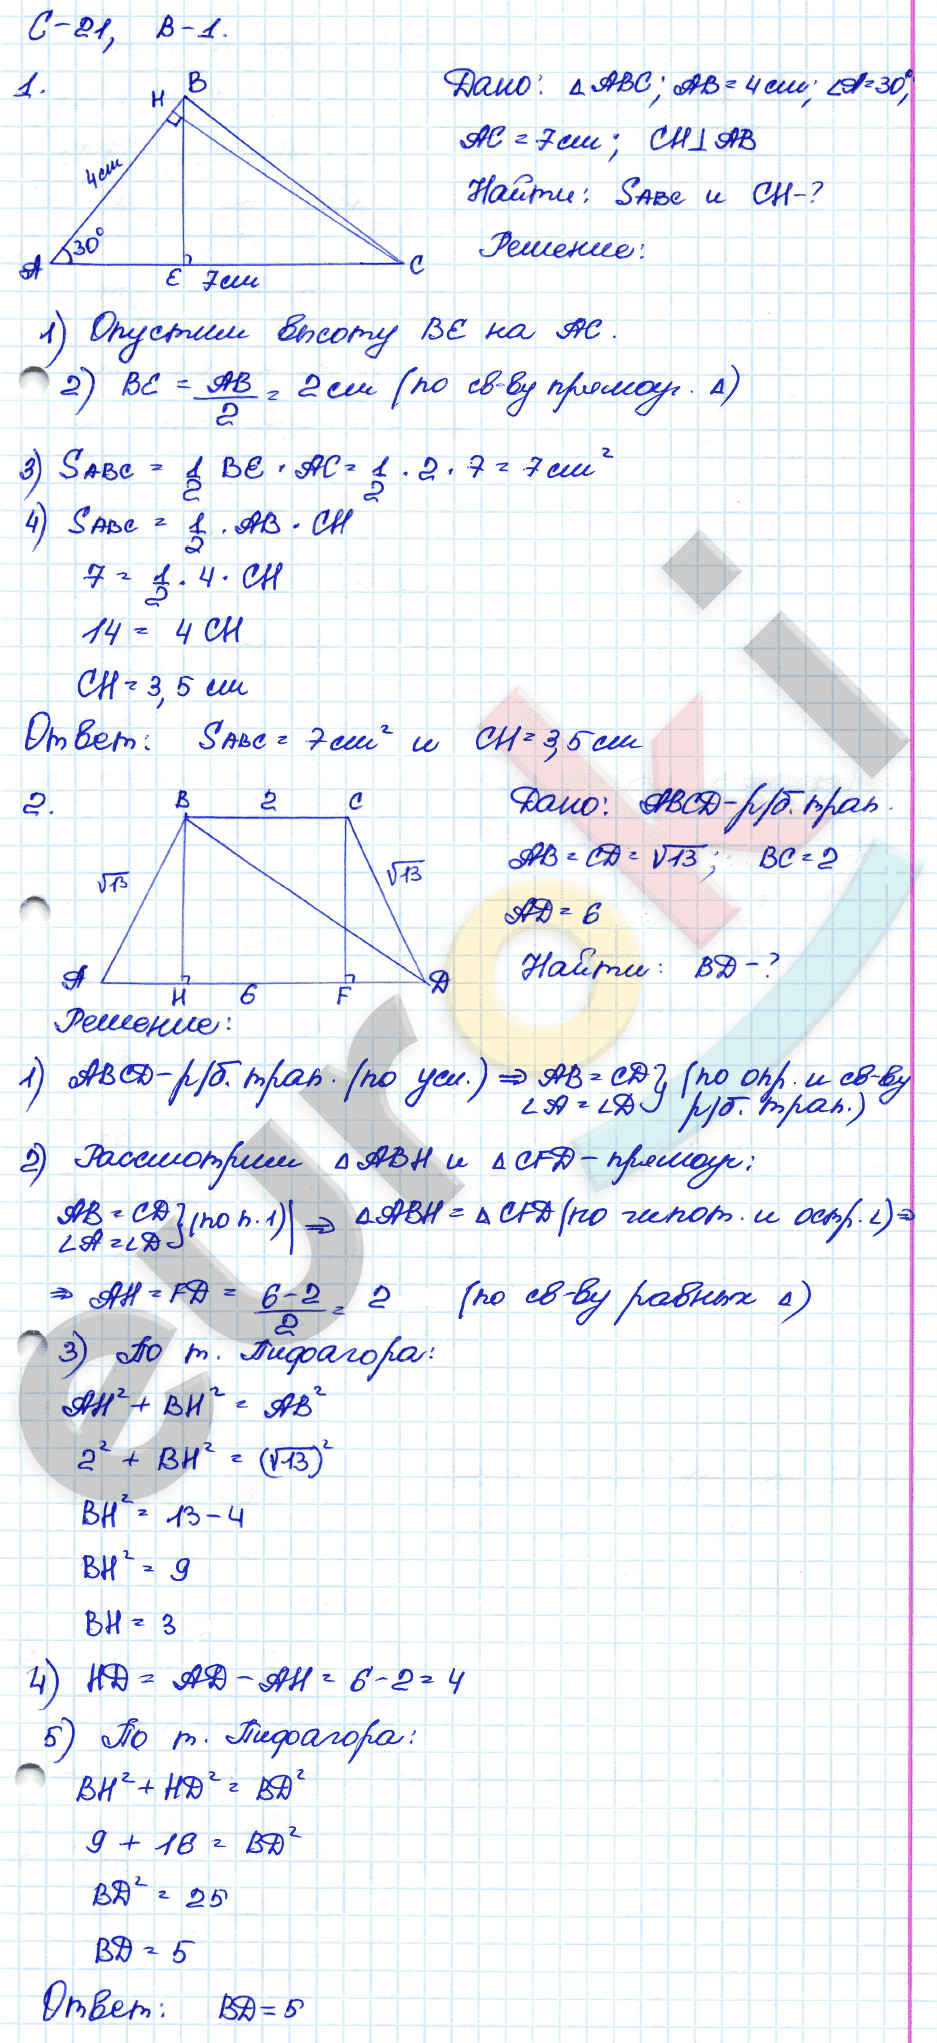 С-21, В-1.
1.
Дано: △ABC; AB=4см; ∠A=30°;
AC=7см; CH⊥AB
Найти: SABC и CH-?
Решение:
H B
4см
30°
A E 7см C
1) Опустим высоту BE на AC.
2) BE = AB/2 = 2см (по св-ву прямоуг. △)
3) SABC = 1/2 BE · AC = 1/2 · 2 · 7 = 7см²
4) SABC = 1/2 · AB · CH
7 = 1/2 · 4 · CH
14 = 4 CH
CH = 3,5 см
Ответ: SABC = 7см² и CH = 3,5см
2.
B 2 C
√13 √13
A H 6 F D
Дано: ABCD-р/б. трап.
AB = CD = √13; BC = 2
AD = 6
Найти: BD-?
Решение:
1) ABCD-р/б. трап. (по усл.) ⇒ AB = CD } (по опр. и св-ву
∠A = ∠D р/б. трап.)
2) Рассмотрим △ABH и △CFD-прямоуг:
AB = CD } (по п.1) | ⇒ △ABH = △CFD (по гипот. и остр. ∠) ⇒
∠A = ∠D
⇒ AH = FD = 6-2/2 = 2 (по св-ву равных △)
3) По т. Пифагора:
AH² + BH² = AB²
2² + BH² = (√13)²
BH² = 13-4
BH² = 9
BH = 3
4) HD = AD - AH = 6-2 = 4
5) По т. Пифагора:
BH² + HD² = BD²
9 + 16 = BD²
BD² = 25
BD = 5
Ответ: BD = 5
euroki